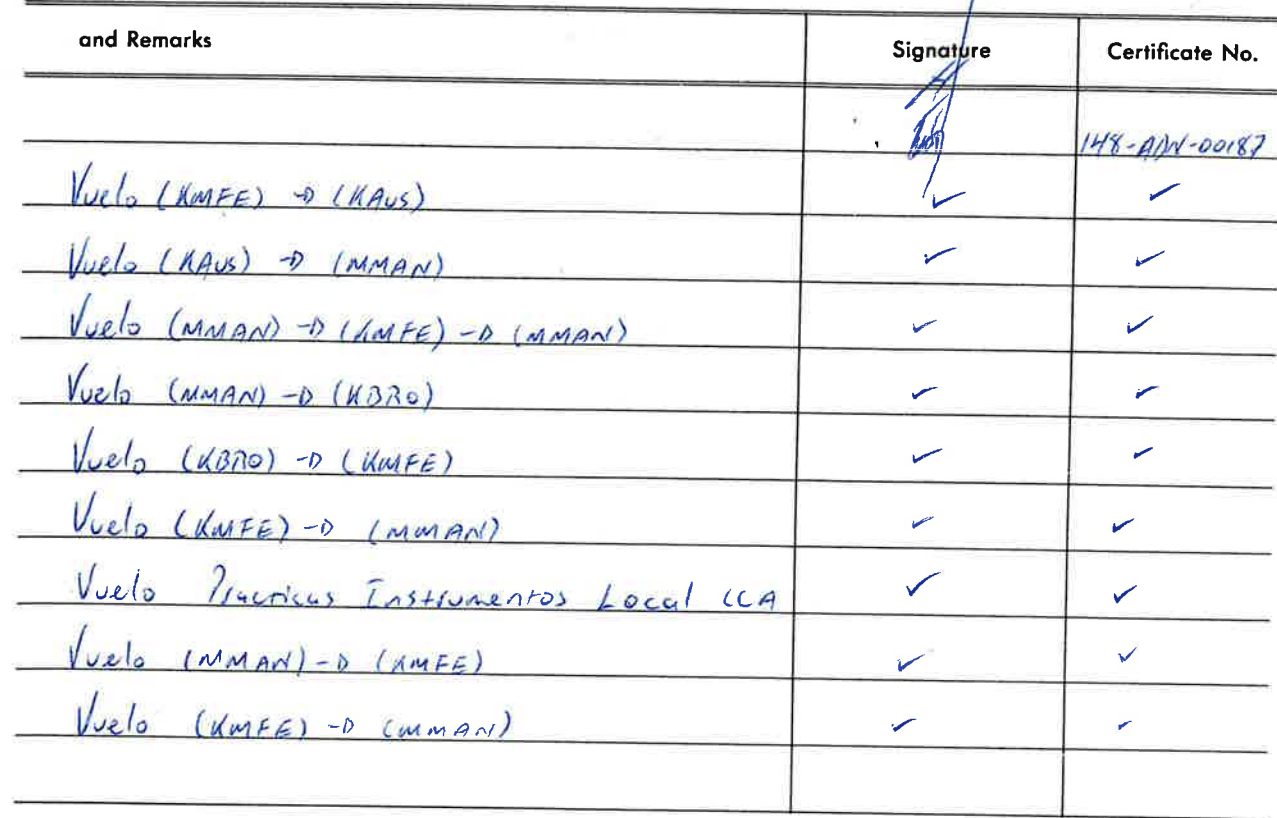 and Remarks Signature Certificate No.
148-ADN-00187
Vuelo (KMFE) → (KAUS) ✓ ✓
Vuelo (KAUS) → (MMAN) ✓ ✓
Vuelo (MMAN) → (KMFE) → (MMAN) ✓ ✓
Vuelo (MMAN) → (KBRO) ✓ ✓
Vuelo (KBRO) → (KMFE) ✓ ✓
Vuelo (KMFE) → (MMAN) ✓ ✓
Vuelo Practicas Instrumentos Local CCA ✓ ✓
Vuelo (MMAN) → (KMFE) ✓ ✓
Vuelo (KMFE) → (MMAN) ✓ ✓